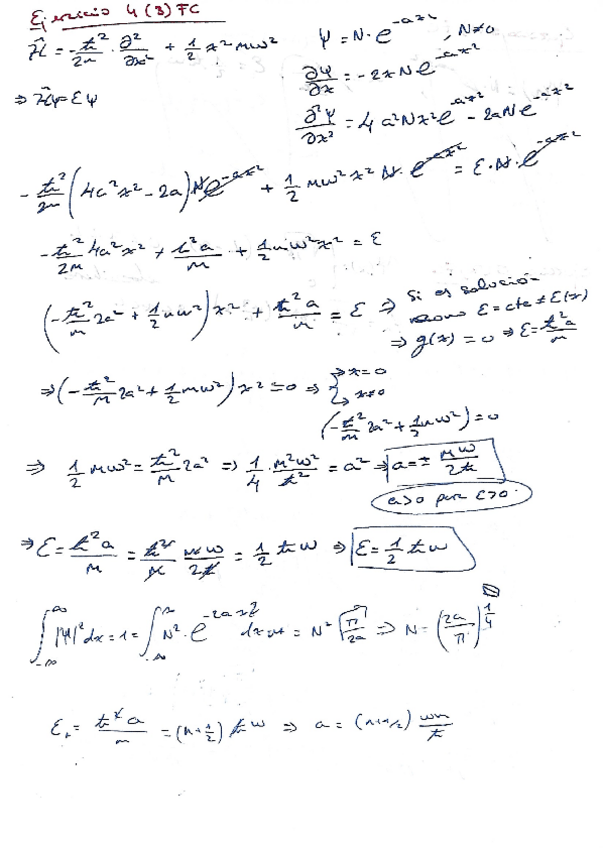 Ejercicio 4 (3) FC
Ĥ = -ħ²/2m · ∂²/∂x² + 1/2 x² mω²
ψ = N · e^(-ax²), N≠0
⇒ Ĥψ = Eψ
∂ψ/∂x = -2xN e^(-ax²)
∂²ψ/∂x² = 4a²Nx²e^(-ax²) - 2aNe^(-ax²)
-ħ²/2m (4a²x² - 2a) N e^(-ax²) + 1/2 mω² x² N · e^(-ax²) = E · N · e^(-ax²)
-ħ²/2m 4a²x² + ħ²a/m + 1/2 mω²x² = E
(-ħ²/m 2a² + 1/2 mω²) x² + ħ²a/m = E ⇒ Si es solución
E = cte ≠ E(x)
⇒ g(x) = 0 ⇒ E = ħ²a/m
⇒ (-ħ²/m 2a² + 1/2 mω²) x² = 0 ⇒ { → x=0
→ x≠0
(-ħ²/m 2a² + 1/2 mω²) = 0
⇒ 1/2 mω² = ħ²/m 2a² ⇒ 1/4 · m²ω²/ħ² = a² ⇒ a = ± mω/2ħ
a>0 por E>0.
⇒ E = ħ²a/m = ħ²/m mω/2ħ = 1/2 ħω ⇒ E = 1/2 ħω
∫_-∞^∞ |ψ|² dx = 1 = ∫_-∞^∞ N² · e^(-2ax²) dx = N² √(π/2a) ⇒ N = (2a/π)^(1/4)
Eₙ = ħ² a/m = (n+1/2) ħω ⇒ a = (n+1/2) ωm/ħ